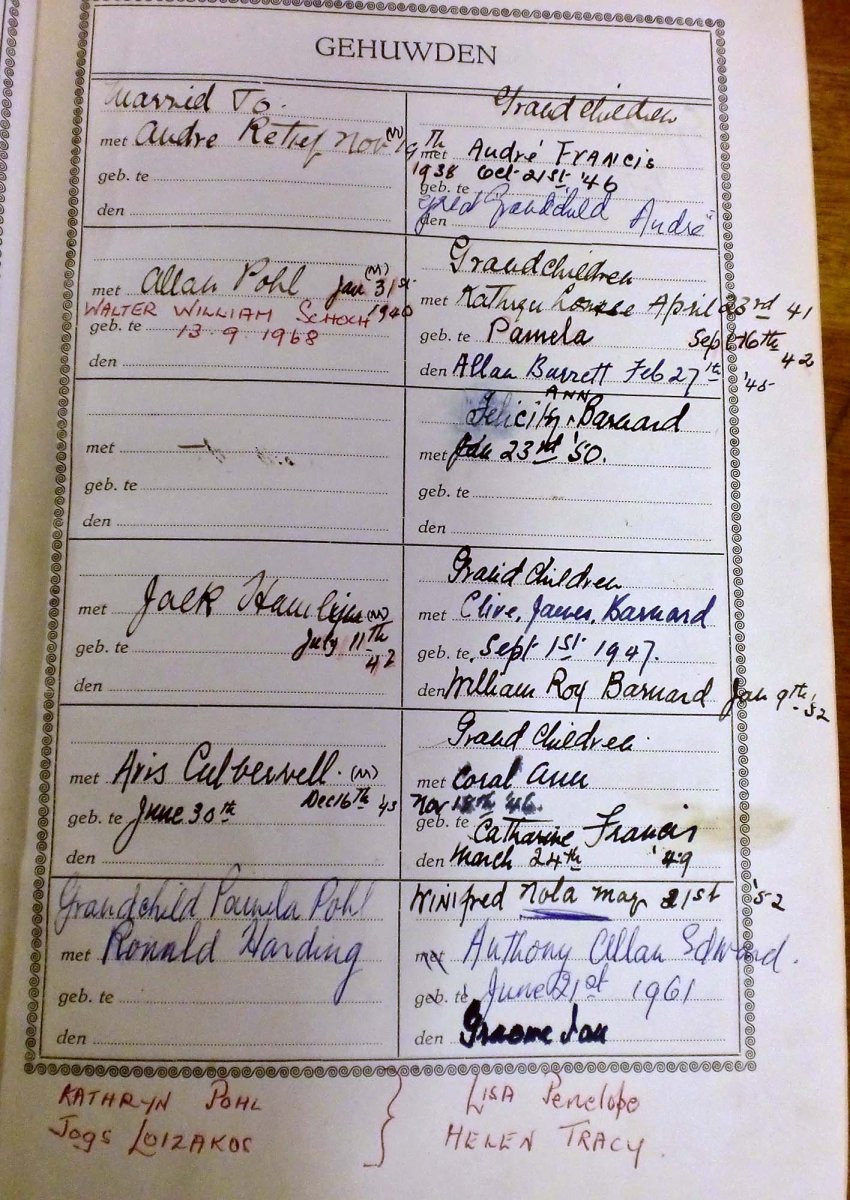 GEHUWDEN
Married To.
met Andre Retief Nov (M) 19th
1938
geb. te
den
Grandchildren
met André Francis
geb. te Oct 21st '46
den Great Grandchild André
met Allan Pohl Jan (M) 31st
1940
WALTER WILLIAM SCHOCH
geb. te 13.9.1968
den
Grandchildren
met Kathryn Louise April 23rd 41
geb. te Pamela Sept 16th
42
den Allan Barrett Feb 27th '45
met
geb. te
den
ANN
Felicity Barnard
met Jan 23rd '50.
geb. te
den
met Jack (M)
geb. te July 11th
42
den
Grand Children
met Clive, James, Barnard
geb. te, Sept 1st 1947.
den William Roy Barnard Jan 9th '52
met Avis Culverwell. (M)
Dec 16th '43
geb. te June 30th
den
Grand Children.
met Coral Ann
Nov 18th '46.
geb. te Catharine Francis
den March 24th '49
Grandchild Pamela Pohl
met Ronald Harding
geb. te
den
Winifred Nola May 21st '52
met Anthony Allan Edward.
geb. te June 21st 1961
den Graeme Ian
KATHRYN POHL } LISA Penelope
Jogs LOIZAKOS HELEN TRACY.